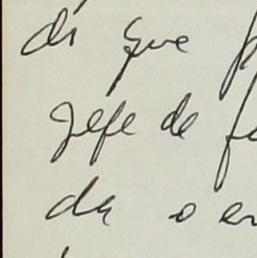 di que
Jefe de
da o en